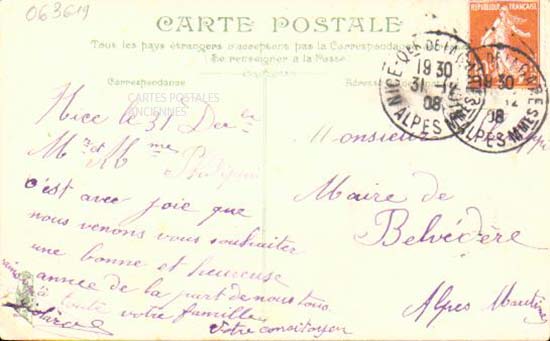 063619
CARTE POSTALE
Tous les pays étrangers n'acceptent pas la Correspondance
Se renseigner à la Poste
Correspondance
CARTES POSTALES
ANCIENNES
REPUBLIQUE FRANÇAISE
NICE
19 30
31 12
08
ALPES MMES
19 30
12
08
ALPES MMES
Nice le 31
Mr et Mme
c'est avec joie que
nous venons vous souhaiter
une bonne et heureuse
année de la part de nous tous
à toute votre famille
votre concitoyen
Monsieur
Maire de
Belvédère
Alpes Maritimes